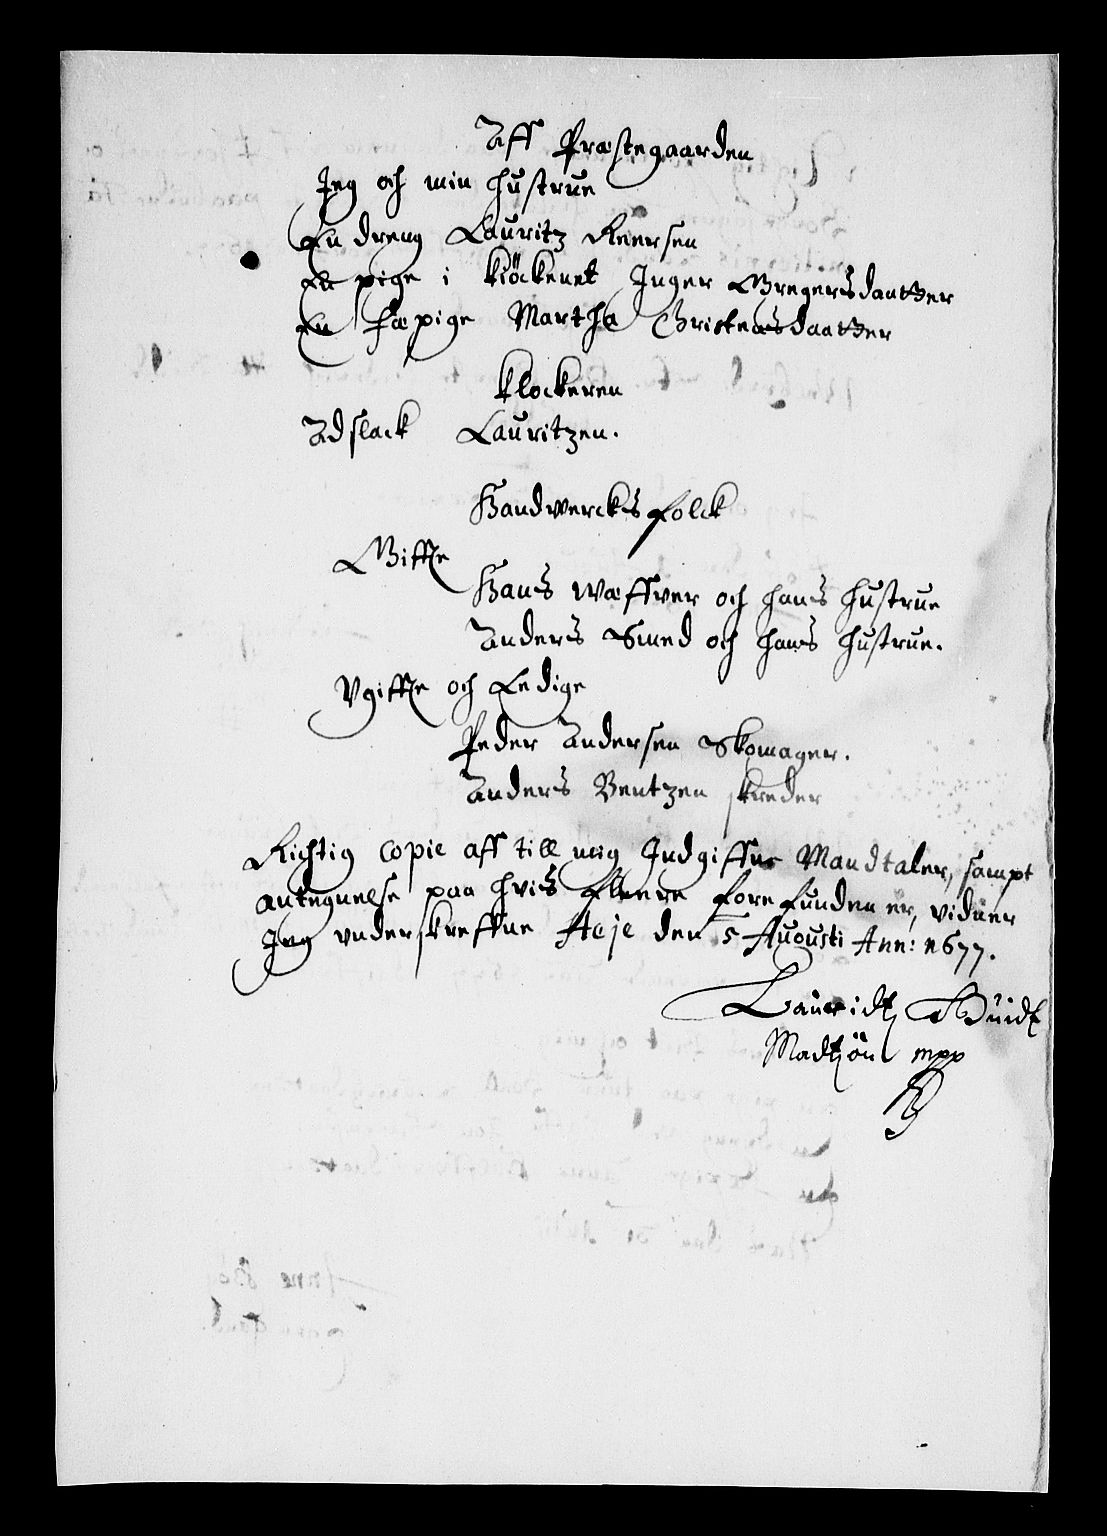 Aff Præstegaarden
Jeg och min hustrue
En dreng Lauritz Reersen
En pige i kiöckenet Inger Gregersdaatter
En fæpige Martha Christensdaatter
Klockeren
Adslack Lauritzen.
Handwercks folck
Giffte
Hans Wæffver och hans hustrue
Anders Smed och hans hustrue.
Vgiffte och Ledige
Peder Andersen Skomager.
Anders Bentzen skreder
Richtig copie aff till mig Indgiffne Mandtaler, sampt
antegnelse paa hvis fleere forefunden er, vidner
Jeg vnderskreffne Aeje den 5 Augusti Ann: 1677.
Lauridtz
mpp